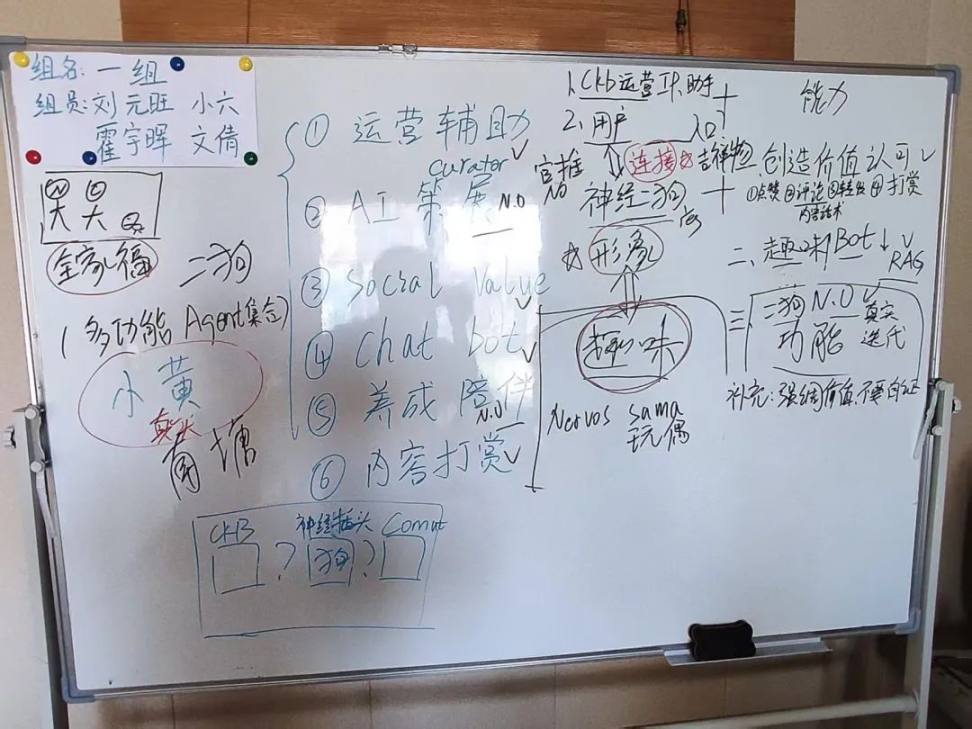 组名:一组
组员:刘元旺 小六
霍宇晖 文倩
全家福
二狗
(多功能 Agent集合)
小黄
CKB
神经插头
狗
?
?
① 运营辅助
curator
② AI 策展 N.O
③ Social Value
④ Chat bot
⑤ 养成陪伴
N.O
⑥ 内容打赏
1. Ckb运营IP助手
2、用户
入口
官推
NO
连接
吉祥物
神经二狗
形象
趣味
Nervos sama
玩偶
能力
创造价值认可
①点赞②评论③转发④打赏
二、趣味Bot
RAG
三、二狗 N.O
功能
真实
迭代
补充:强调价值,不要自证